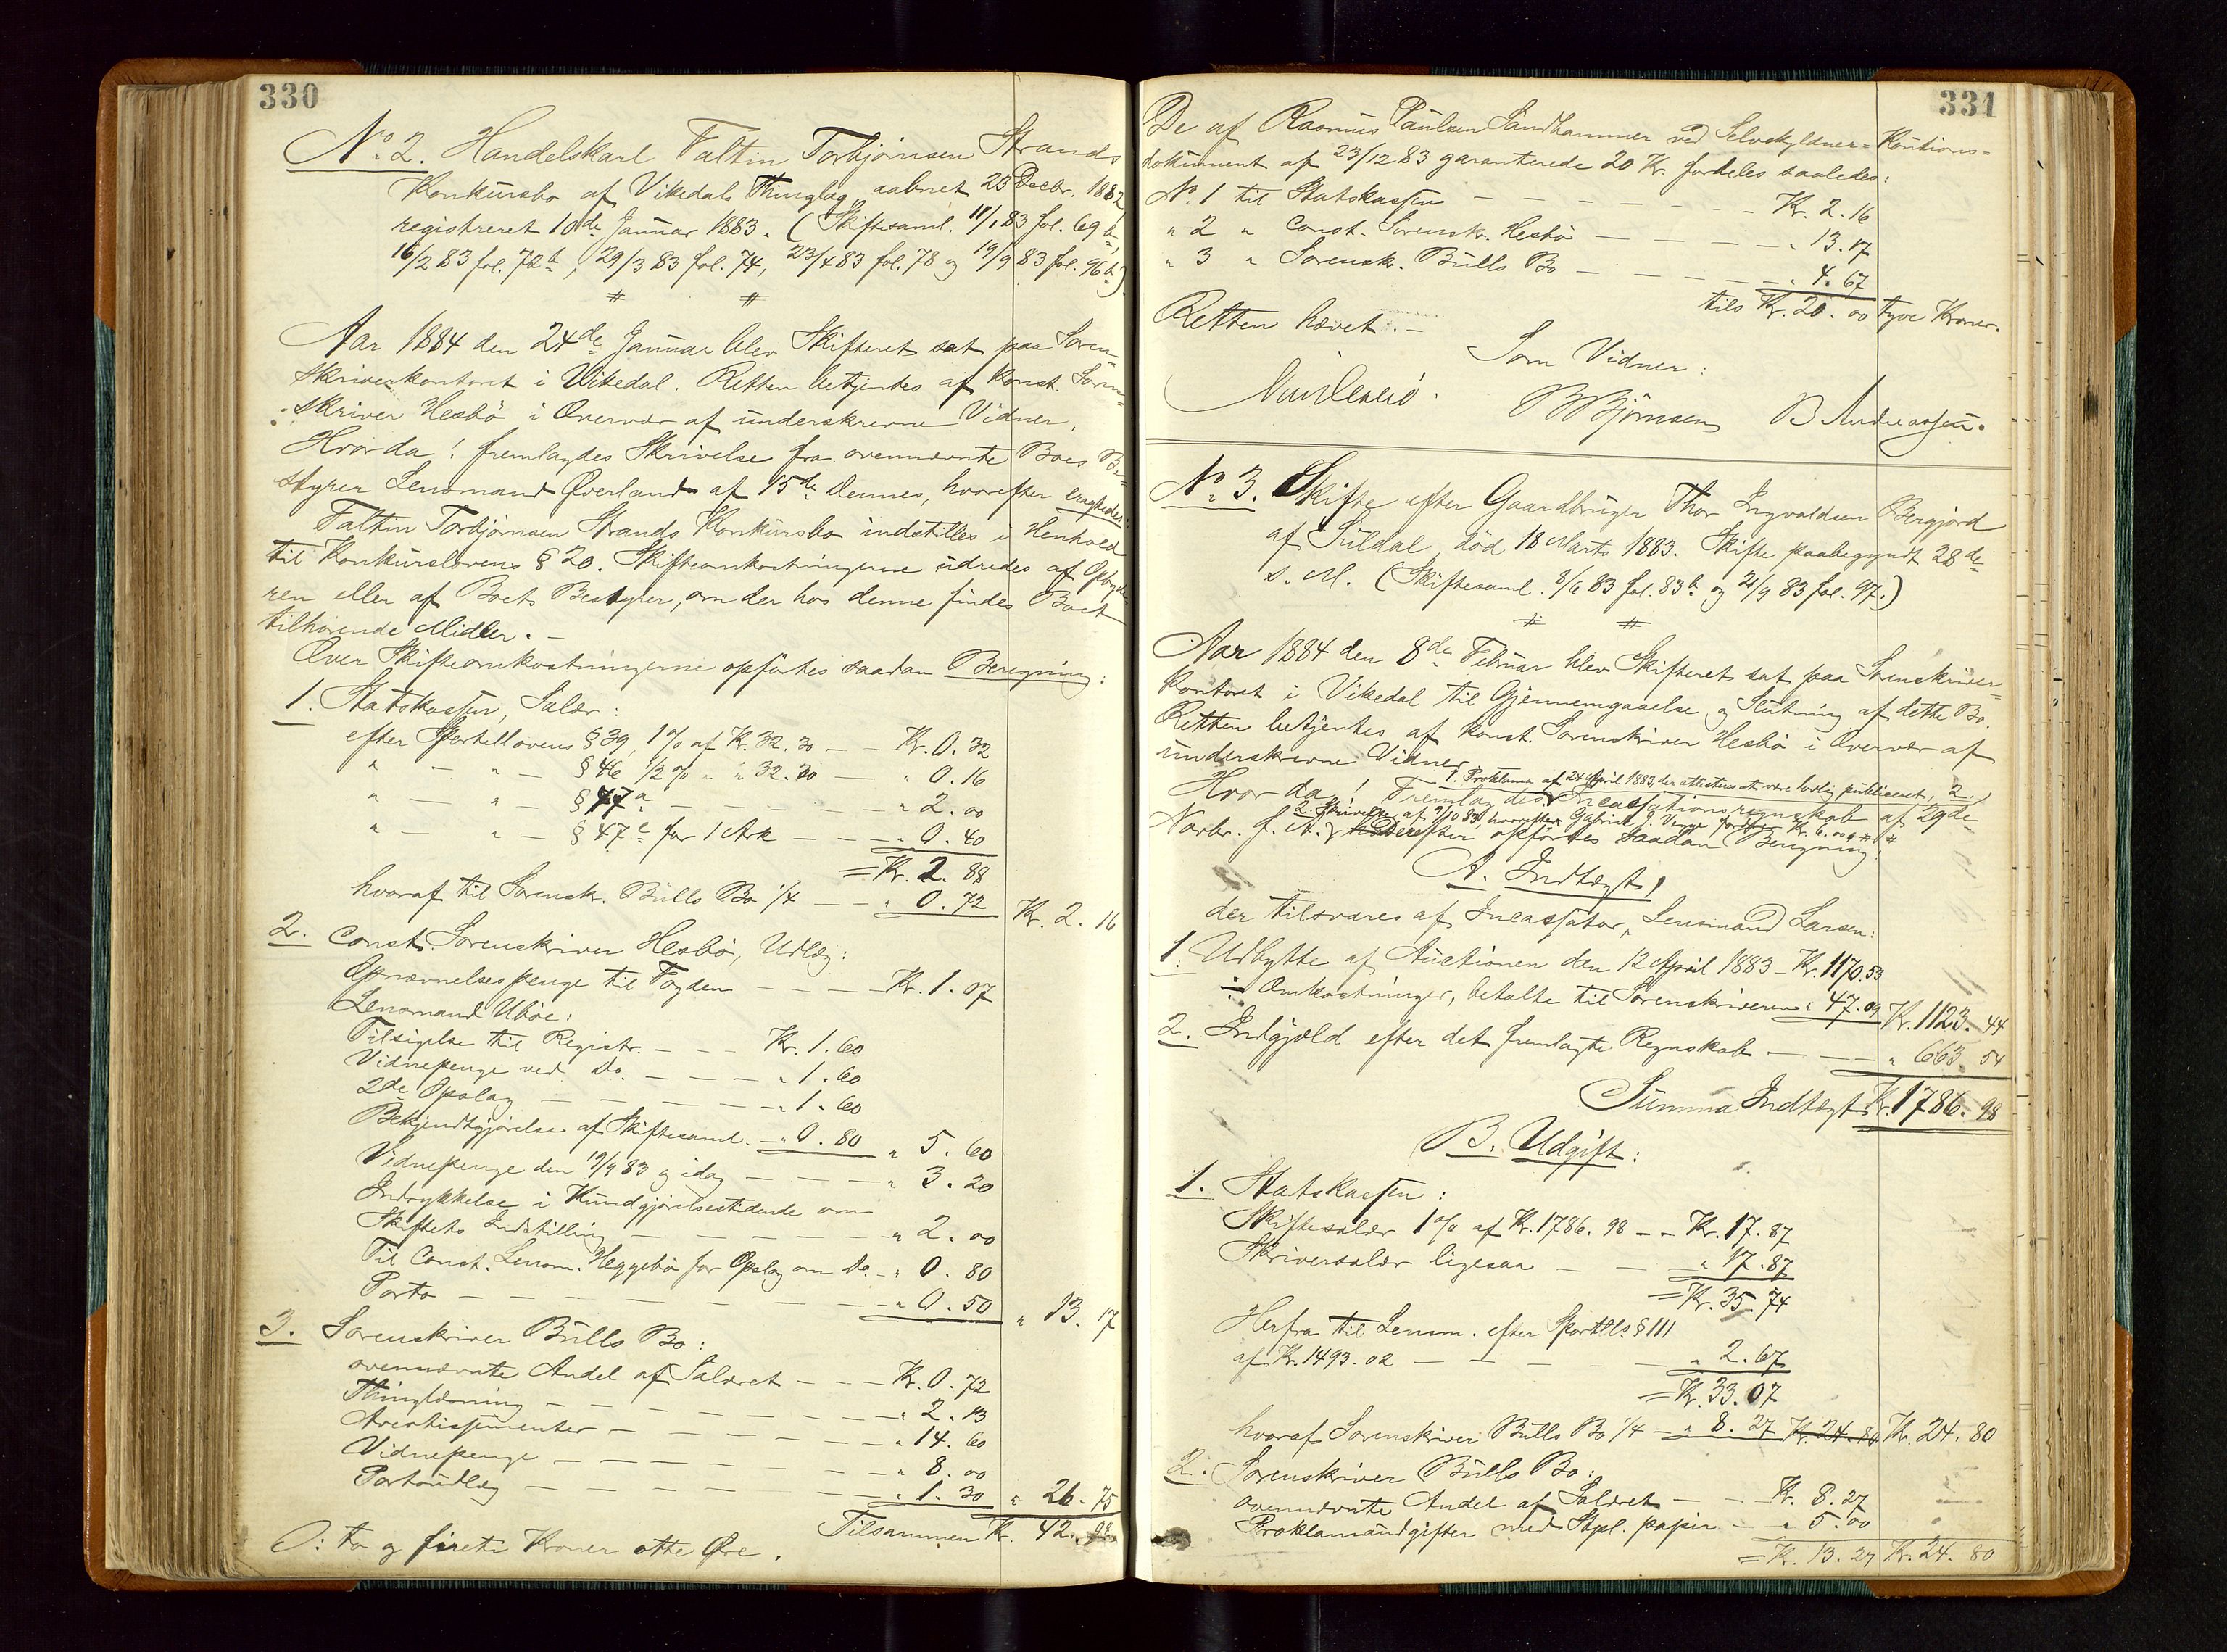 330
No. 2. Handelskarl Faltin Torbjørnsen Strands
Konkursbo af Vikedals Thinglag, aabnet 23 Decbr. 1882,
registreret 10de Januar 1883. (Skiftesaml. 11/1 83 fol. 69 b,
16/2 83 fol. 72 b, 29/3 83 fol. 74, 23/4 83 fol. 78 og 19/9 83 fol. 96 b)
# #
Aar 1884 den 24de Januar blev Skifteret sat paa Soren-
skriverkontoret i Vikedal. Retten betjentes af Konst. Soren-
skriver Hesbö i Overvær af underskrevne Vidner.
Hvorda! fremlagdes Skrivelse fra ovennævnte Boes Be-
styrer Lensmand Øverland af 15de dennes, hvorefter eragtedes:
Faltin Torbjørnsen Strands Konkursbo indstilles i Henhold
til Konkurslovens § 20. Skifteomkostningerne udredes af Opbyde-
ren eller af Boets Bestyrer, om der hos denne findes Boet
tilhørende Midler. –
Over Skifteomkostningerne opførtes saadan Beregning:
1. Statskassen, Salær:
efter Sportellovens § 39, 1% af K. 32.30 – – Kr. 0.32
" — " — § 46 1/2 % " " 32.30 — " 0.16
" — " — § 47 a — — — — " 2.00
" — " — § 47 c for 1 Ark — — " 0.40
= Kr. 2.88
hvoraf til Sorensk. Bülls Bo 1/4 — — " 0.72 Kr. 2.16
2. Const. Sorenskriver Hesbö, Udlæg:
Opnævnelsespenge til Fogden — — — Kr. 1.07
Lensmand Ubøe:
Tilsigelse til Registr. — — — Kr. 1.60
Vidnepenge ved Do. — — — — " 1.60
2de Opslag — — — — — " 1.60
Bekjendtgjørelse af Skiftesaml. — " 0.80 " 5.60
Vidnepenge den 19/9 83 og idag — — — — " 3.20
Indrykkelse i Kundgjørelsestidende om
Skiftets Indstilling — — — — — " 2.00
Til Const. Lensm. Heggebö for Opslag om Do. — " 0.80
Porto — — — — — — — — " 0.50 " 13.17
3. Sorenskriver Bülls Bo:
ovennævnte Andel af Salæret — — — Kr. 0.72
Thinglæsning — — — — — — — " 2.13
Avertissementer — — — — — — " 14.60
Vidnepenge — — — — — — — " 8.00
Portoudlæg — — — — — — " 1.30 " 26.75
Tilsammen Kr. 42.08
O: to og fireti Kroner otte Øre.
331
De af Rasmus Paulsen Sandhammer ved Selvskyldner-Kautions-
dokument af 23/12 83 garanterede 20 Kr. fordeles saaledes:
No. 1 til Statskassen — — — — — — Kr. 2.16
" 2 " Const. Sorensk. Hesbö — — — — " 13.17
" 3 " Sorensk. Bülls Bo — — — — " 4.67
tils Kr. 20.00 tyve Kroner.
Retten hævet. –
Som Vidner:
BBjörnsen B Andreassen.
No. 3. Skifte efter Gaardbruger Thor Ingvaldsen Bergjord
af Suldal, död 18 Marts 1883. Skifte paabegyndt 28de
s. M. (Skiftesaml. 8/6 83 fol. 83 b og 21/9 83 fol. 97.)
# #
Aar 1884 den 8de Februar blev Skifteret sat paa Sorenskriver-
kontoret i Vikedal til Gjennemgaaelse og Slutning af dette Bo.
Retten betjentes af Konst. Sorenskriver Hesbö i Overvær af
underskrevne Vidner.
1. Proklama af 24 April 1883, der attesteres at være lovlig publiceret, 2.
Hvorda! Fremlagdes Incassationsregnskab af 29de
2. Skrivelse af 9/10 83, hvorefter Gabriel J. fordrer Kr. 6.00, # #
Novbr. f. A., hvorefter opförtes saadan Beregning:
A. Indtægt,
der tilsvares af Incassator, Lensmand Larsen:
1. Udbytte af Auctionen den 12 April 1883 – Kr. 1170.53
÷ Omkostninger, betalte til Sorenskriveren " 47.09 Kr. 1123.44
2. Indgjæld efter det fremlagte Regnskab — — — " 663.54
Summa Indtægt Kr. 1786.98
B. Udgift:
1. Statskassen:
Skiftesalær 1% af Kr. 1786.98 – – Kr. 17.87
Skriversalær ligesaa — — — " 17.87
= Kr. 35.74
Herfra til Lensm. efter Sportls. § 111
af Kr. 1493.02 — — — — " 2.67
= Kr. 33.07
hvoraf Sorenskriver Bülls Bo 1/4 — " 8.27 Kr. 24.80 Kr. 24.80
2. Sorenskriver Bülls Bo:
ovennævnte Andel af Salæret — — Kr. 8.27
Proklamaudgifter med Stpl. papir — " 5.00
= Kr. 13.27 Kr. 24.80